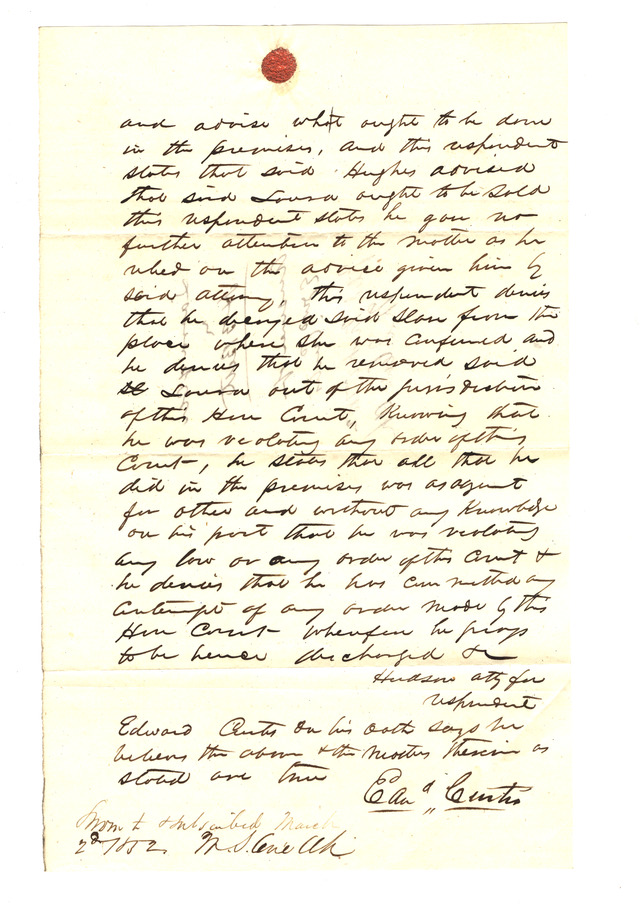 and advise what ought to be done
in the premises, and this respondent
states that said Hughes advised
that said Louisa ought to be sold
this respondent states he gave no
further attention to the matter as he
relied on the advice given him by
said attorney, this respondent denies
that he decoyed said slave from the
place where she was confined and
he denies that he removed said
Louisa out of the jurisdiction
of this Hon Court, Knowing that
he was violating any order of this
Court, he states that all that he
did in the premises was as agent
for other and without any Knowledge
on his part that he was violating
any law or any order of this Court &
he denies that he has committed any
contempt of any order made by this
Hon Court wherefore he prays
to be hence discharged &c
Hudson atty for
respondent
Edward Curtis on his oath says he
believes the above & the matters therein as
stated are true
Edwd Curtis
Sworn to & subscribed March
2d 1852